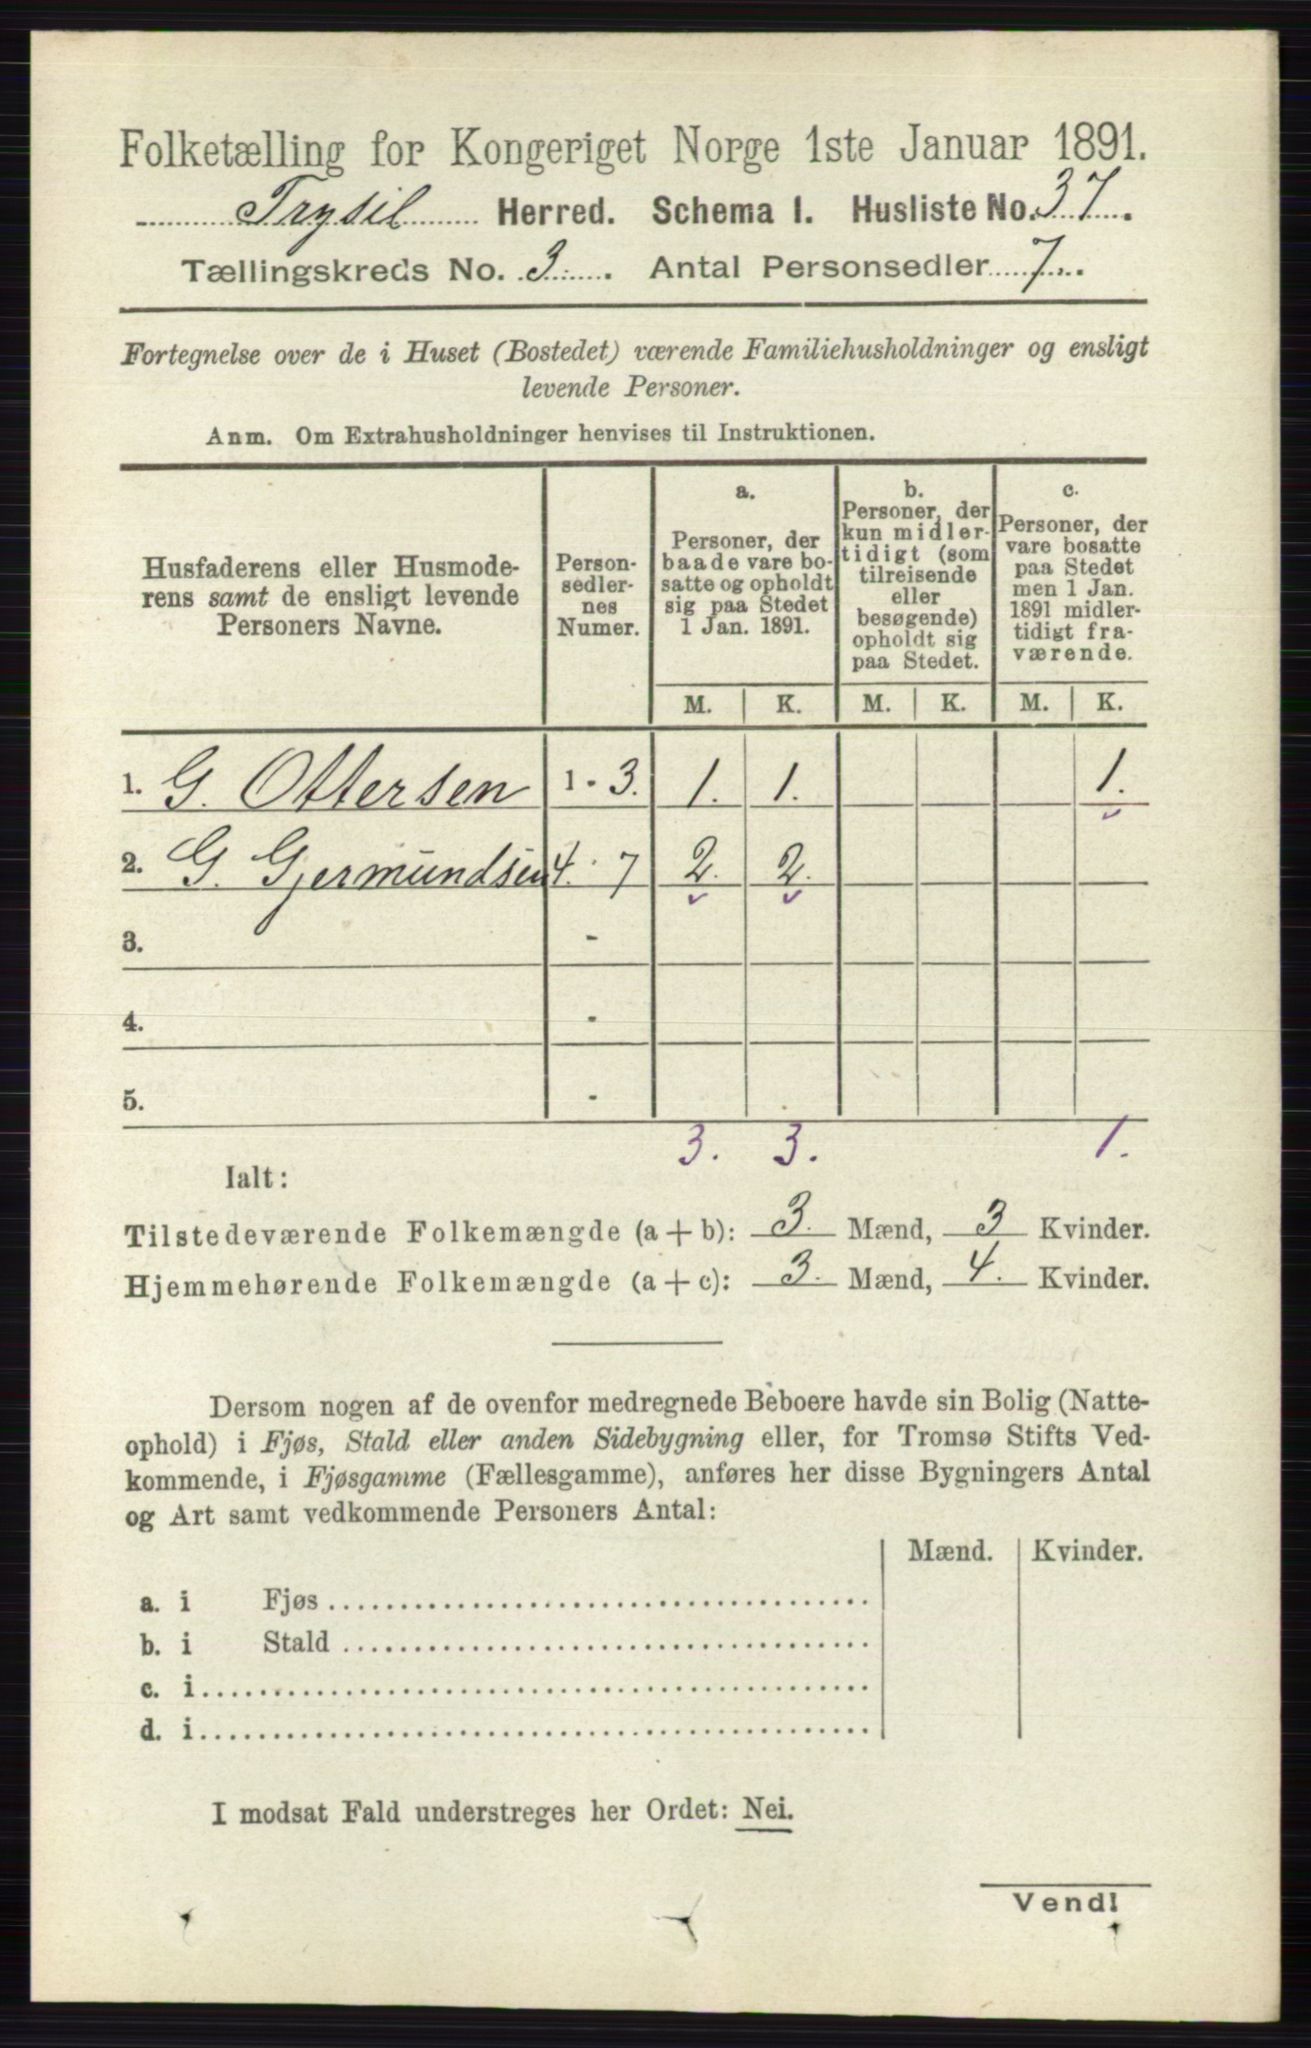 Folketælling for Kongeriget Norge 1ste Januar 1891.
Trysil Herred. Schema 1. Husliste No. 37.
Tællingskreds No. 3. Antal Personsedler 7.
Fortegnelse over de i Huset (Bostedet) værende Familiehusholdninger og ensligt
levende Personer.
Anm. Om Extrahusholdninger henvises til Instruktionen.
Husfaderens eller Husmode-
rens samt de ensligt levende
Personers Navne.
Person-
sedler-
nes
Numer.
a.
Personer, der
baade vare bo-
satte og opholdt
sig paa Stedet
1 Jan. 1891.
b.
Personer, der
kun midler-
tidigt (som
tilreisende
eller
besøgende)
opholdt sig
paa Stedet.
c.
Personer, der
vare bosatte
paa Stedet
men 1 Jan.
1891 midler-
tidigt fra-
værende.
M. K. M. K. M. K.
1. G. Ottersen 1 - 3. 1. 1. 1.
2. G. Gjermundsen 4. 7 2. 2.
3. -
4. -
5. -
3. 3. 1.
Ialt:
Tilstedeværende Folkemængde (a + b): 3. Mænd, 3 Kvinder.
Hjemmehørende Folkemængde (a + c): 3. Mænd, 4. Kvinder.
Dersom nogen af de ovenfor medregnede Beboere havde sin Bolig (Natte-
ophold) i Fjøs, Stald eller anden Sidebygning eller, for Tromsø Stifts Ved-
kommende, i Fjøsgamme (Fællesgamme), anføres her disse Bygningers Antal
og Art samt vedkommende Personers Antal:
Mænd. Kvinder.
a. i Fjøs
b. i Stald
c. i
d. i
I modsat Fald understreges her Ordet: Nei.
Vend!